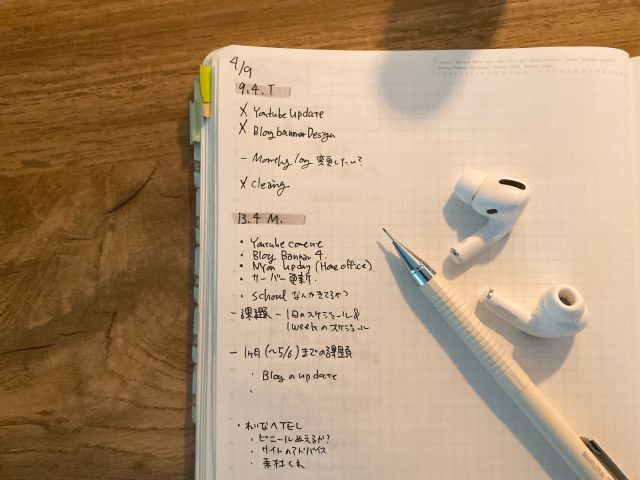 4/9
9.4. T
X Youtube update
X Blog banner Design
- Monthly log 変更したい?
X Cleaing
13.4 M.
・ Youtube coment
・ Blog Banner 4.
・ Nyan Upday (Home office)
・ サーバー更新.
・ school なんかきてるかっ
- 課題 - 1日のスケジュール &
1 week のスケジュール
- 1ヶ月 (〜5/6) までの課題
・ Blog の update
・
・ れいなへTEL
・ ビニールぬえるか?
・ サイトのアドバイス
・ 素材くれ